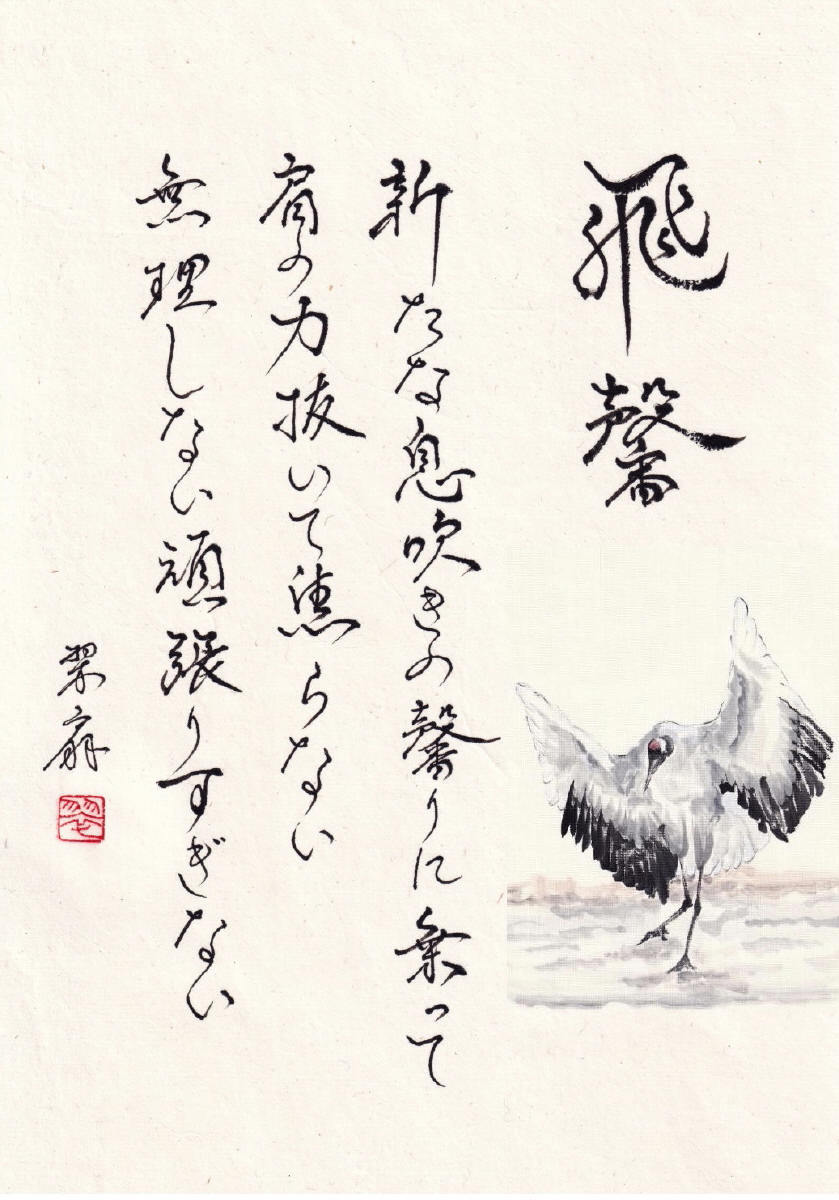 飛馨
新たな息吹きの馨りに乗って
肩の力抜いて焦らない
無理しない頑張りすぎない